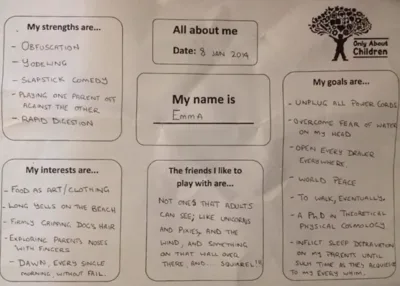 My strengths are...
- OBFUSCATION
- YODELING
- SLAPSTICK COMEDY
- PLAYING ONE PARENT OFF
AGAINST THE OTHER
- RAPID DIGESTION
All about me
Date: 8 JAN 2014
My name is
EMMA
Only About
Children
My goals are...
- UNPLUG ALL POWER CORDS
- OVERCOME FEAR OF WATER
ON MY HEAD
- OPEN EVERY DRAWER
EVERYWHERE
- WORLD PEACE
- TO WALK, EVENTUALLY
- A PhD IN THEORETICAL
PHYSICAL COSMOLOGY
- INFLICT SLEEP DEPRIVATION
ON MY PARENTS UNTIL
SUCH TIME AS THEY ACQUIESCE
TO MY EVERY WHIM.
My interests are...
- FOOD AS ART/CLOTHING
- LONG YELLS ON THE BEACH
- FIRMLY GRIPPING DOGS HAIR
- EXPLORING PARENTS NOSES
WITH FINGERS
- DAWN, EVERY SINGLE
MORNING, WITHOUT FAIL.
The friends I like to
play with are...
NOT ONES THAT ADULTS
CAN SEE; LIKE UNICORNS
AND PIXIES, AND THE
WIND, AND SOMETHING
ON THAT WALL OVER
THERE, AND... SQUIREL!!